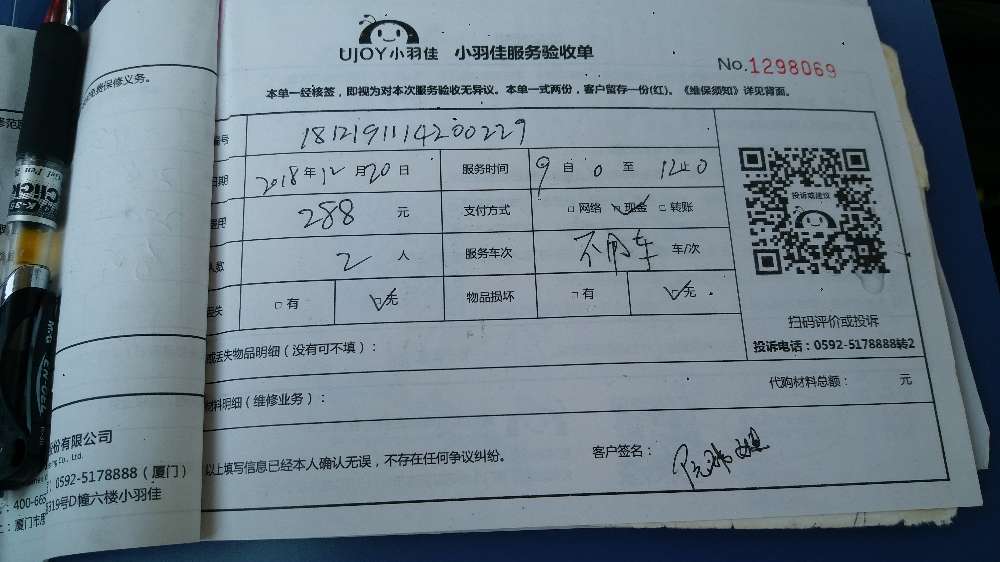 UJOY小羽佳 小羽佳服务验收单
No.1298069
本单一经核签，即视为对本次服务验收无异议。本单一式两份，客户留存一份(红)。《维保须知》详见背面。
号 1812191114200229
日期 2018年12月20日 服务时间 9自0至12止0
费用 288元 支付方式 □网络 ☑现金 □转账
人数 2人 服务车次 不用车 车/次
丢失 □有 ☑无 物品损坏 □有 ☑无
投诉或建议
扫码评价或投诉
投诉电话：0592-5178888转2
丢失物品明细（没有可不填）：
材料明细（维修业务）：
代购材料总额： 元
以上填写信息已经本人确认无误，不存在任何争议纠纷。
客户签名：
免费保修义务。
份有限公司
Co., Ltd.
0592-5178888（厦门）
400-665
319号D幢六楼小羽佳
厦门市
Click